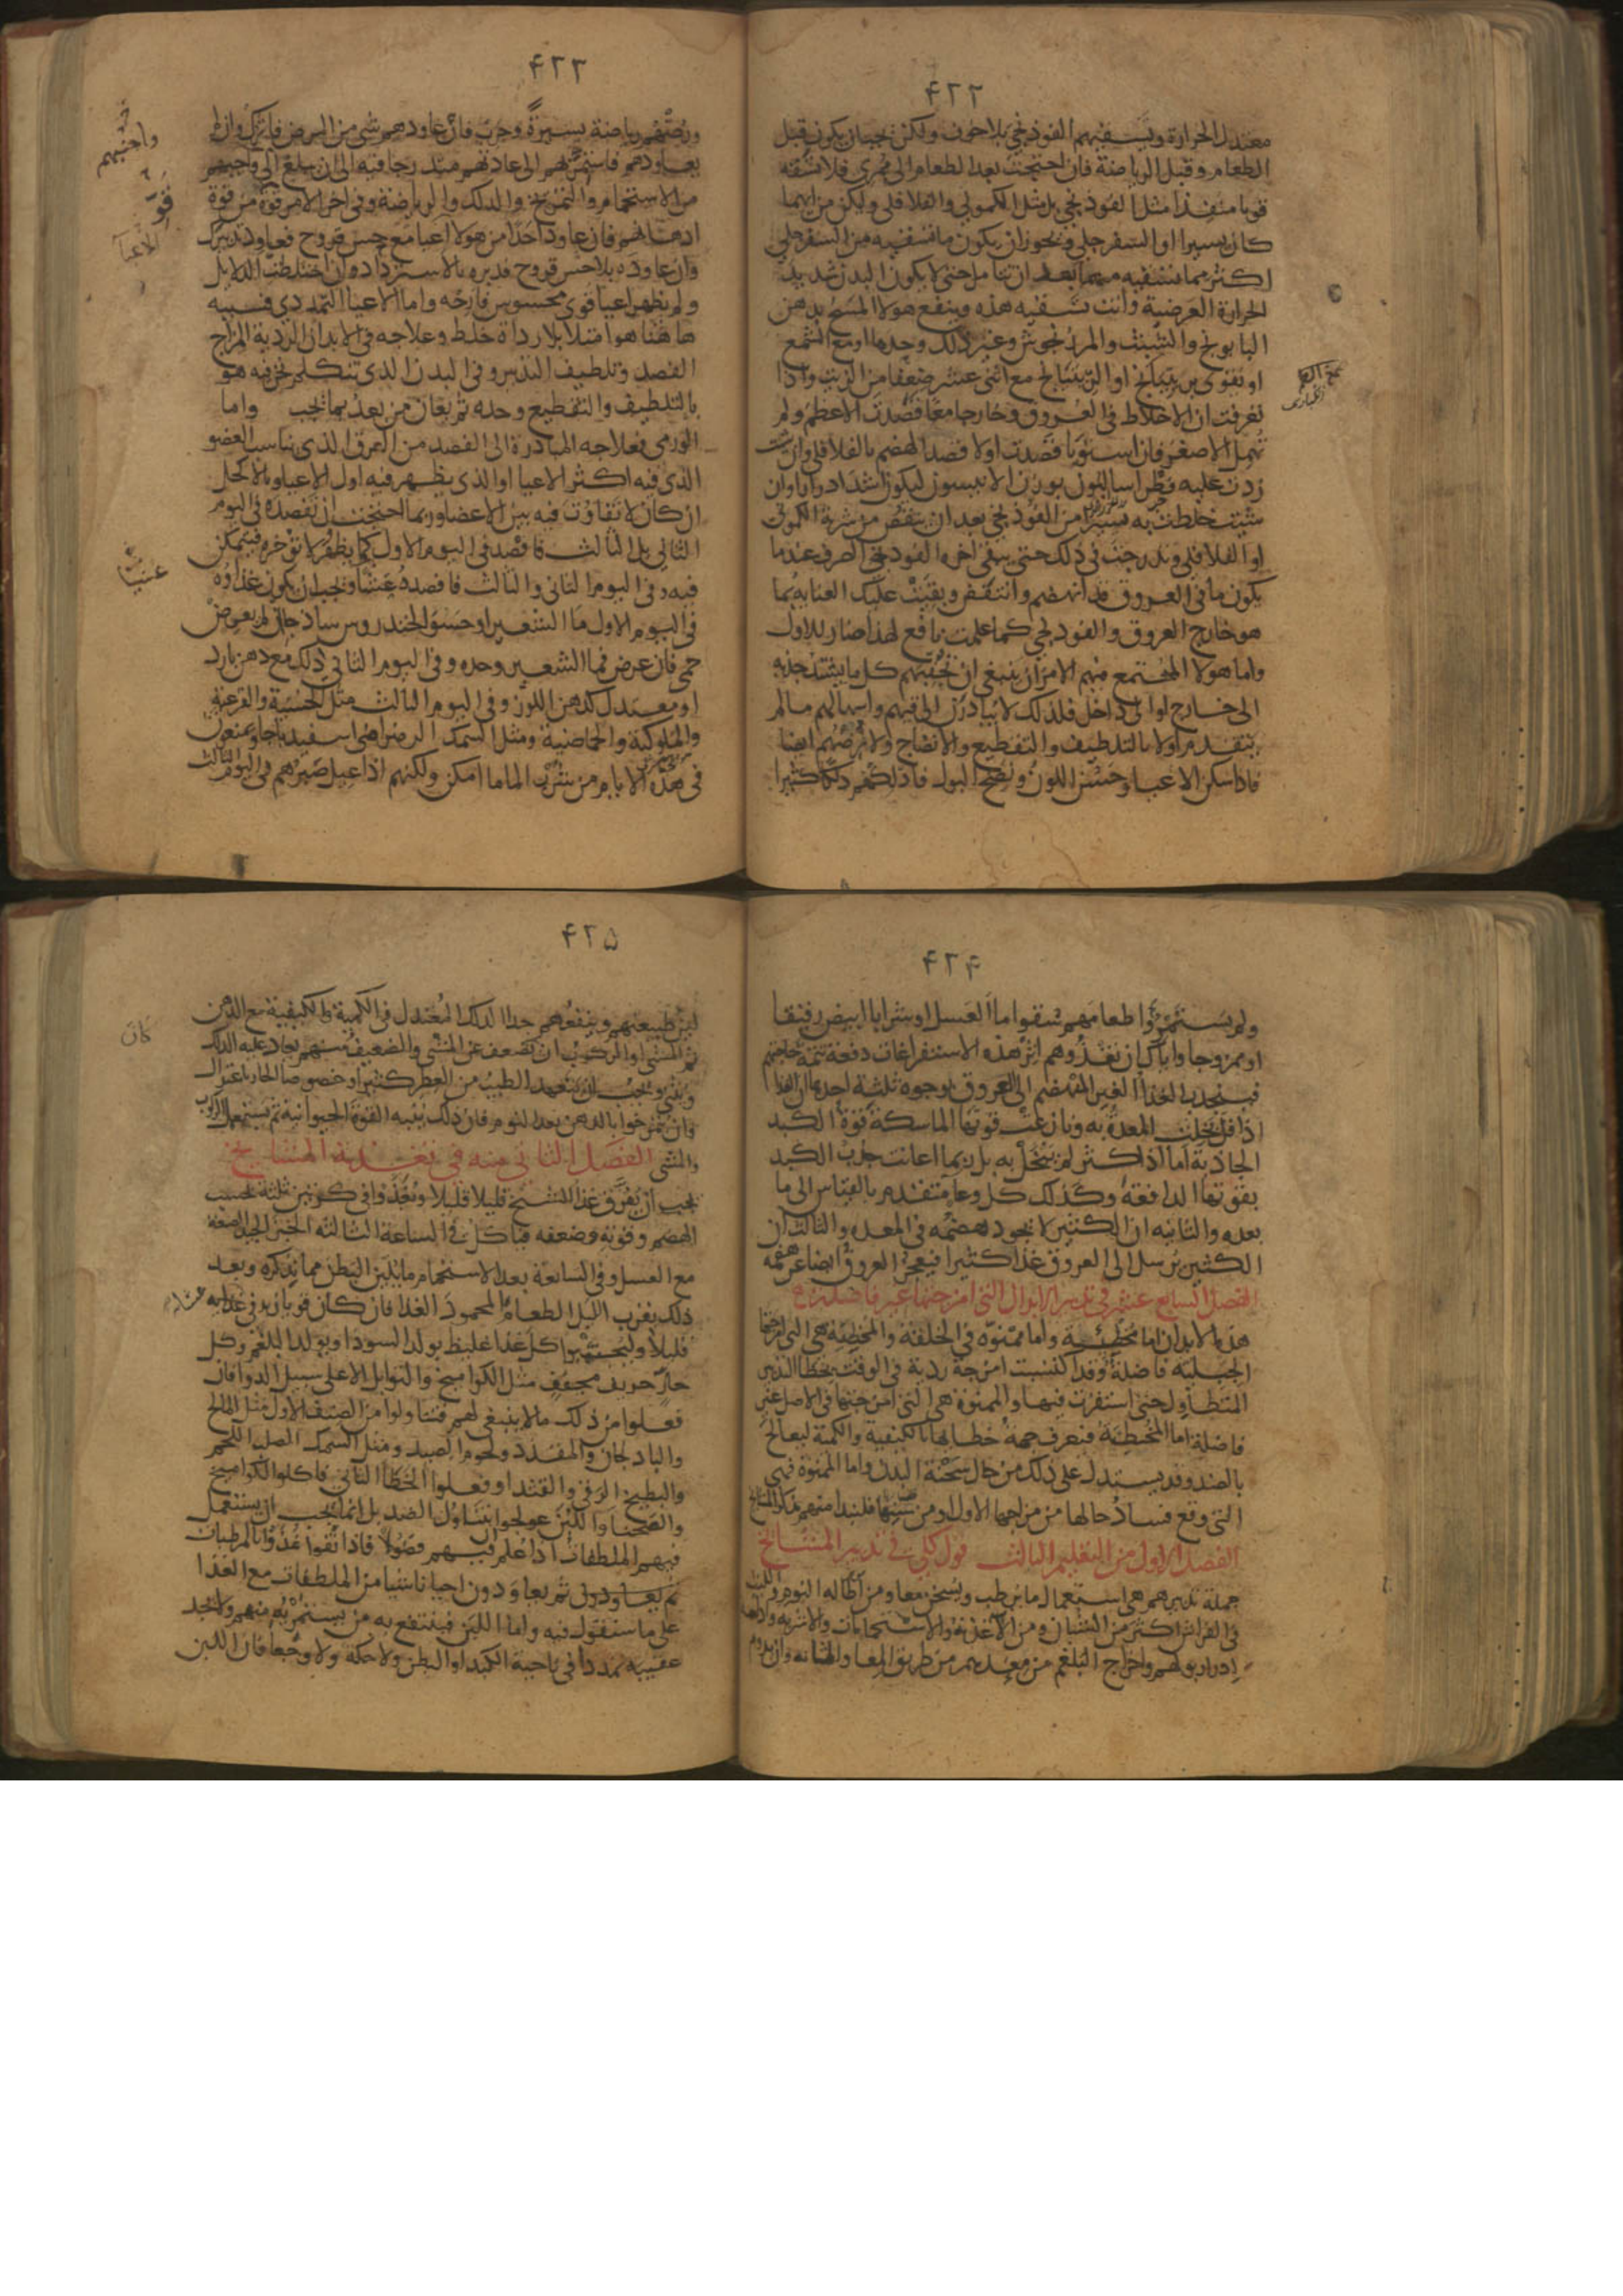 ۴۲۲
معتدل الحرارة وتسقيهم الفوذنجي بلا خوف ولكن يجب ان يكون قبل
الطعام وقبل الرياضة فان احتجت بعد الطعام الى ممرى فلا تسقه
قويا منفذا مثل الفوذنجي بل مثل الكموني والفلافلي وليكن من ايهما
كان يسيرا او السفرجلي ويجوز ان يكون ما تسقيه من السفرجلي
اكثر مما تسقيه منهما بعد ان تتامل حتى لا يكون البدن شديد
الحرارة العرضية وانت تسقيه هذه وينفع هولا المسح بدهن
البابونج والشبث والمرزنجوش وغير ذلك وحدها او مع الشمع
او تقوى براتيانج او الريتيانج مع اثنى عشر ضعفا من الزيت واذا
تعرفت ان الاخلاط في العروق وخارجا معا قصدت الاعظم ولم
تهمل الاصغر فان استويا قصدت اولا قصد الهضم بالفلافلي وان شئت
زدت عليه فطراساليون بوزن الانيسون ليكون اشد ادرارا وان
شئت خلطت به يسيرا من الفوذنجي بعد ان ينقص من شربة الكموني
او الفلافلي وتدرجت في ذلك حتى يبقى اخره الفوذنجي الصرف عندما
يكون ما في العروق قد انهضم وانتفض وبقيت عليك العناية بما
هو خارج العروق والفوذنجي كما علمت نافع لهذا ضار للاول
واما هولا المجتمع فيهم الامران ينبغي ان تجنبهم كل ما يشتد جذبه
الى خارج او الى داخل فلذلك لا تبادرن الى قيهم واسهالهم ما لم
يتقدم اولا بالتلطيف والتقطيع والانضاج ولا ترضهم ايضا
فاذا سكن الاعيا وحسن اللون ونضج البول فادلكهم دلكا كثيرا
۴۲۳
ورضهم رياضة يسيرة وجرب فان عاودهم شى من المرض فاترك وان لم
يعاودهم فاستمر بهم الى عادتهم متدرجا فيه الى ان يبلغ الى واجبهم
من الاستحمام والتمريخ والدلك والرياضة وفي اخر الامر قو من قوة
ادهانهم فان عاود احدا من هولا اعيا مع حس قروح فعاود تدبيرك
وان عاوده بلا حس قروح فدبره بالاسترداد وان اختلطت الدلايل
ولم يظهر اعيا قوى محسوس فارحه واما الاعيا التمددي فسببه
هاهنا هو امتلا بلا رداة خلط وعلاجه في الابدان الردية المزاج
الفصد وتلطيف التدبير وفي البدن الذي نتكلم نحن فيه هو
بالتلطيف والتقطيع وحده ثم يعان من بعد بما يجب واما
الورمي فعلاجه المبادرة الى الفصد من العرق الذي يناسب العضو
الذي فيه اكثر الاعيا او الذي يظهر فيه اول الاعيا وبالاكحل
ان كان لا تفاوت فيه بين الاعضا وربما احتجت ان تفصده في اليوم
الثاني بل الثالث فافصد في اليوم الاول كما يظهر لا تؤخره فيتمكن
فيه وفي اليوم الثاني والثالث فافصده عشيا ويجب ان يكون غذاوه
في اليوم الاول ما الشعير او حسو الخندروس ساذجا ان لم يعرض
حمى فان عرض فما الشعير وحده وفي اليوم الثاني ذلك مع دهن بارد
او معتدل كدهن اللوز وفي اليوم الثالث مثل الخسية والقرعية
والملوكية والحماضية ومثل السمك الرضراضى اسفيدباجا ويمنعون
في هذه الايام من شرب الما ما امكن ولكنهم اذا عيل صبرهم في اليوم الثالث
واجبهم
قو
الاعيا
عشيا
۴۲۴
ولم يستمروا طعامهم سقوا ما العسل او شرابا ابيض رقيقا
او ممزوجا واياك ان تغذوهم اثر هذه الاستفراغات دفعة تتمة حاجتهم
فينجذب الغذا الغير المنهضم الى العروق بوجوه ثلثة احدها ان الغذا
اذا قل بخلت المعدة به ونازعت قوتها الماسكة قوة الكبد
الجاذبة اما اذا كثر لم تبخل به بل ربما اعانت جذب الكبد
بقوتها الدافعة وكذلك كل وعا متقدم بالقياس الى ما
بعده والثانيه ان الكثير لا يجود هضمه في المعده والثالث ان
الكثير يرسل الى العروق غذا كثيرا فيعجز العروق ايضا عن هضمه
الفصل السابع عشر في تدبير الابدان التي امزجتها غير فاضلة
هذه الابدان اما مخطئية واما ممنوة في الخلقة والمخطئة هي التي امزجتها
الجبلية فاضلة وقد اكتسبت امزجة ردية في الوقت بخطا التدبير
المتطاول حتى استقرت فيها والممنوة هي التي امزجتها في الاصل غير
فاضلة اما المخطئة فتعرف جهة خطايها بالكيفية والكمية ليعالج
بالضد وقد يستدل على ذلك من حال سحنة البدن واما الممنوة فهى
التى وقع فساد حالها من مزاجها الاول او من سنها فلنبدا منهم بذكر المشايخ
الفصل الاول من التعليم الثالث قول كلى في تدبير المشايخ
جملة تدبيرهم هى استعمال ما يرطب ويسخن معا ومن اطاله النوم واللبث
في الفراش اكثر من الشبان ومن الاغذية والاستحمامات والاشربه وادامة
ادرار بولهم واخراج البلغم من معدتهم من طريق المعا والمثانه وان يدوم
۴۲۵
لين طبيعتهم وينفعهم جدا الدلك المعتدل في الكمية والكيفية مع الدهن
ثم المشى او الركوب ان ضعف عن المشي والضعيف منهم يعاد عليه الدلك
ويثنى ويجب ان يتعهد الطيب من العطر كثيرا وخصوصا الحار باعتدال
وان يمرخوا بالدهن بعد النوم فان ذلك ينبه القوة الحيوانية ثم يستعمل الركوب
والمشى الفصل الثاني منه في تغذية المشايخ
يجب ان يفرق غذا الشيخ قليلا قليلا ويغذوا في كرتين ثلثة بحسب
الهضم وقوته وضعفه فياكل في الساعة الثالثه الخبز الجيد الصنعة
مع العسل وفي السابعة بعد الاستحمام ما يلين البطن مما نذكره وبعد
ذلك بقرب الليل الطعام المحمود الغذا فان كان قويا زيد في غذايه
قليلا وليجتنبوا كل غذا غليظ يولد السودا ويولد البلغم وكل
حار حريف مجفف مثل الكواميخ والتوابل الا على سبيل الدوا فان
فعلوا من ذلك ما لا ينبغي لهم فتناولوا من الصنف الاول مثل المالح
والباذنجان والمقدد ولحوم الصيد ومثل السمك الصلب اللحم
والبطيخ الرقي والقثد او فعلوا الخطا الثاني فاكلوا الكواميخ
والصحنا واللبن عولجوا بتناول الضد بل انما يجب ان يستعمل
فيهم الملطفات اذا علم فيهم فضولا فاذا نقوا غذوا بالمرطبات
ثم يعاودون احيانا شيا من الملطفات مع الغذا
على ما سنقول فيه واما اللبن فينتفع به من يستمريه منهم ولا يجد
عقيبه تمددا في ناحية الكبد او البطن ولا حكة ولا وجعا فان اللبن
كان